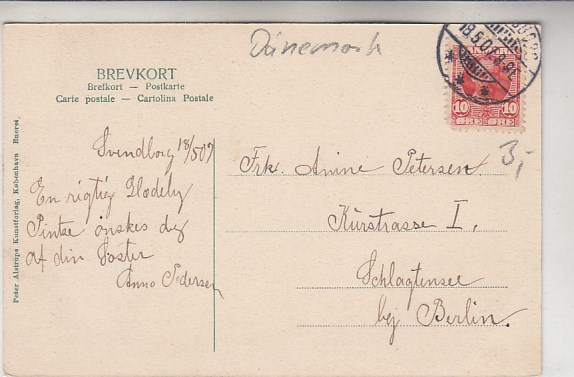 Dänemark
BREVKORT
Brefkort — Postkarte
Carte postale — Cartolina Postale
18.5.07
10 10
ØRE ØRE
3,-
Svendborg 18/5 07
En rigtig Glædelig
Pintse önskes dig
af din Søster
Anna Pedersen
Frk. Anine Petersen.
Kürstrasse I,
Schlagtensee
bej Berlin.
Peter Alstrups Kunstforlag, København Eneret